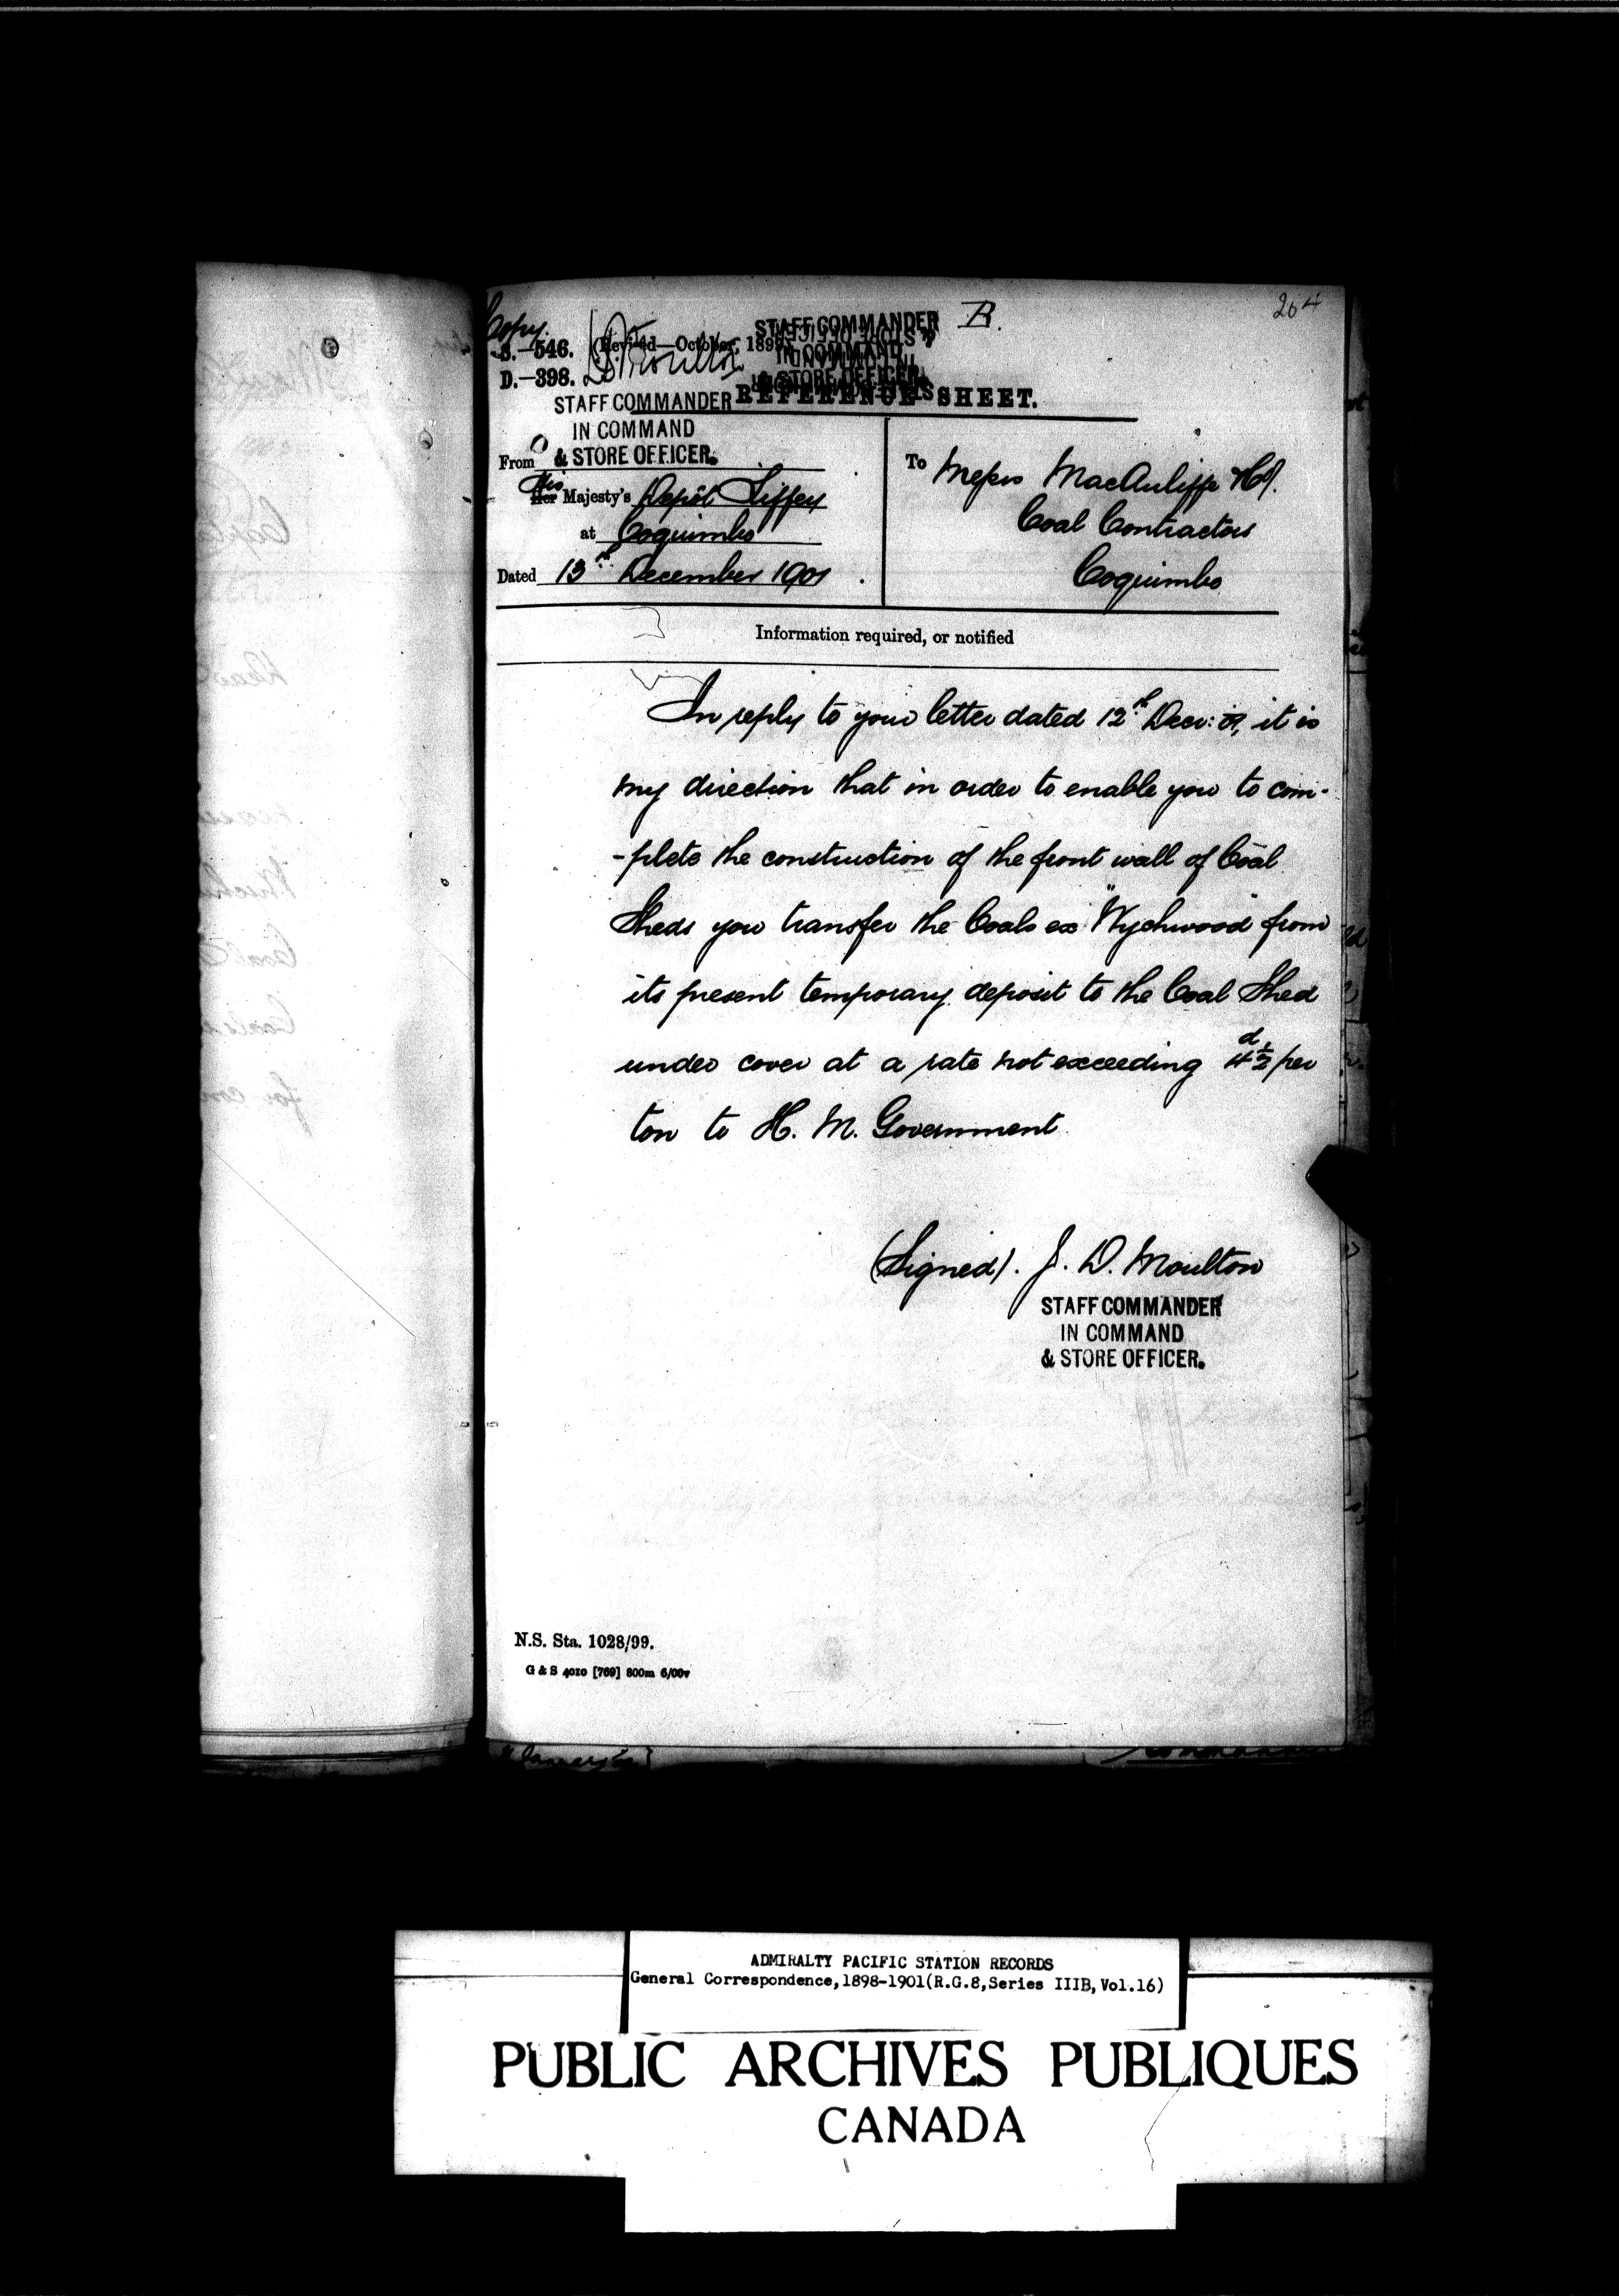 264
B.
Copy.
S.—546. (Revised—October, 1899).
D.—398. J D Moulton
STAFF COMMANDER
IN COMMAND
& STORE OFFICER.
REFERENCE SHEET.
STAFF COMMANDER
IN COMMAND
& STORE OFFICER.
From
His
Her Majesty's Depôt Liffey
at Coquimbo
Dated 13th December 1901.
To Messrs MacAuliffe & Co.
Coal Contractors
Coquimbo
Information required, or notified
In reply to your letter dated 12th Decr: 01, it is
my direction that in order to enable you to com-
-plete the construction of the front wall of Coal
Sheds you transfer the Coals ex "Wychwood" from
its present temporary deposit to the Coal Shed
under cover at a rate not exceeding 4½d per
ton to H. M. Government
(Signed). J. D. Moulton
STAFF COMMANDER
IN COMMAND
& STORE OFFICER.
N.S. Sta. 1028/99.
G & S 4010 [769] 800m 6/00v
ADMIRALTY PACIFIC STATION RECORDS
General Correspondence,1898-1901(R.G.8,Series IIIB,Vol.16)
PUBLIC ARCHIVES PUBLIQUES
CANADA